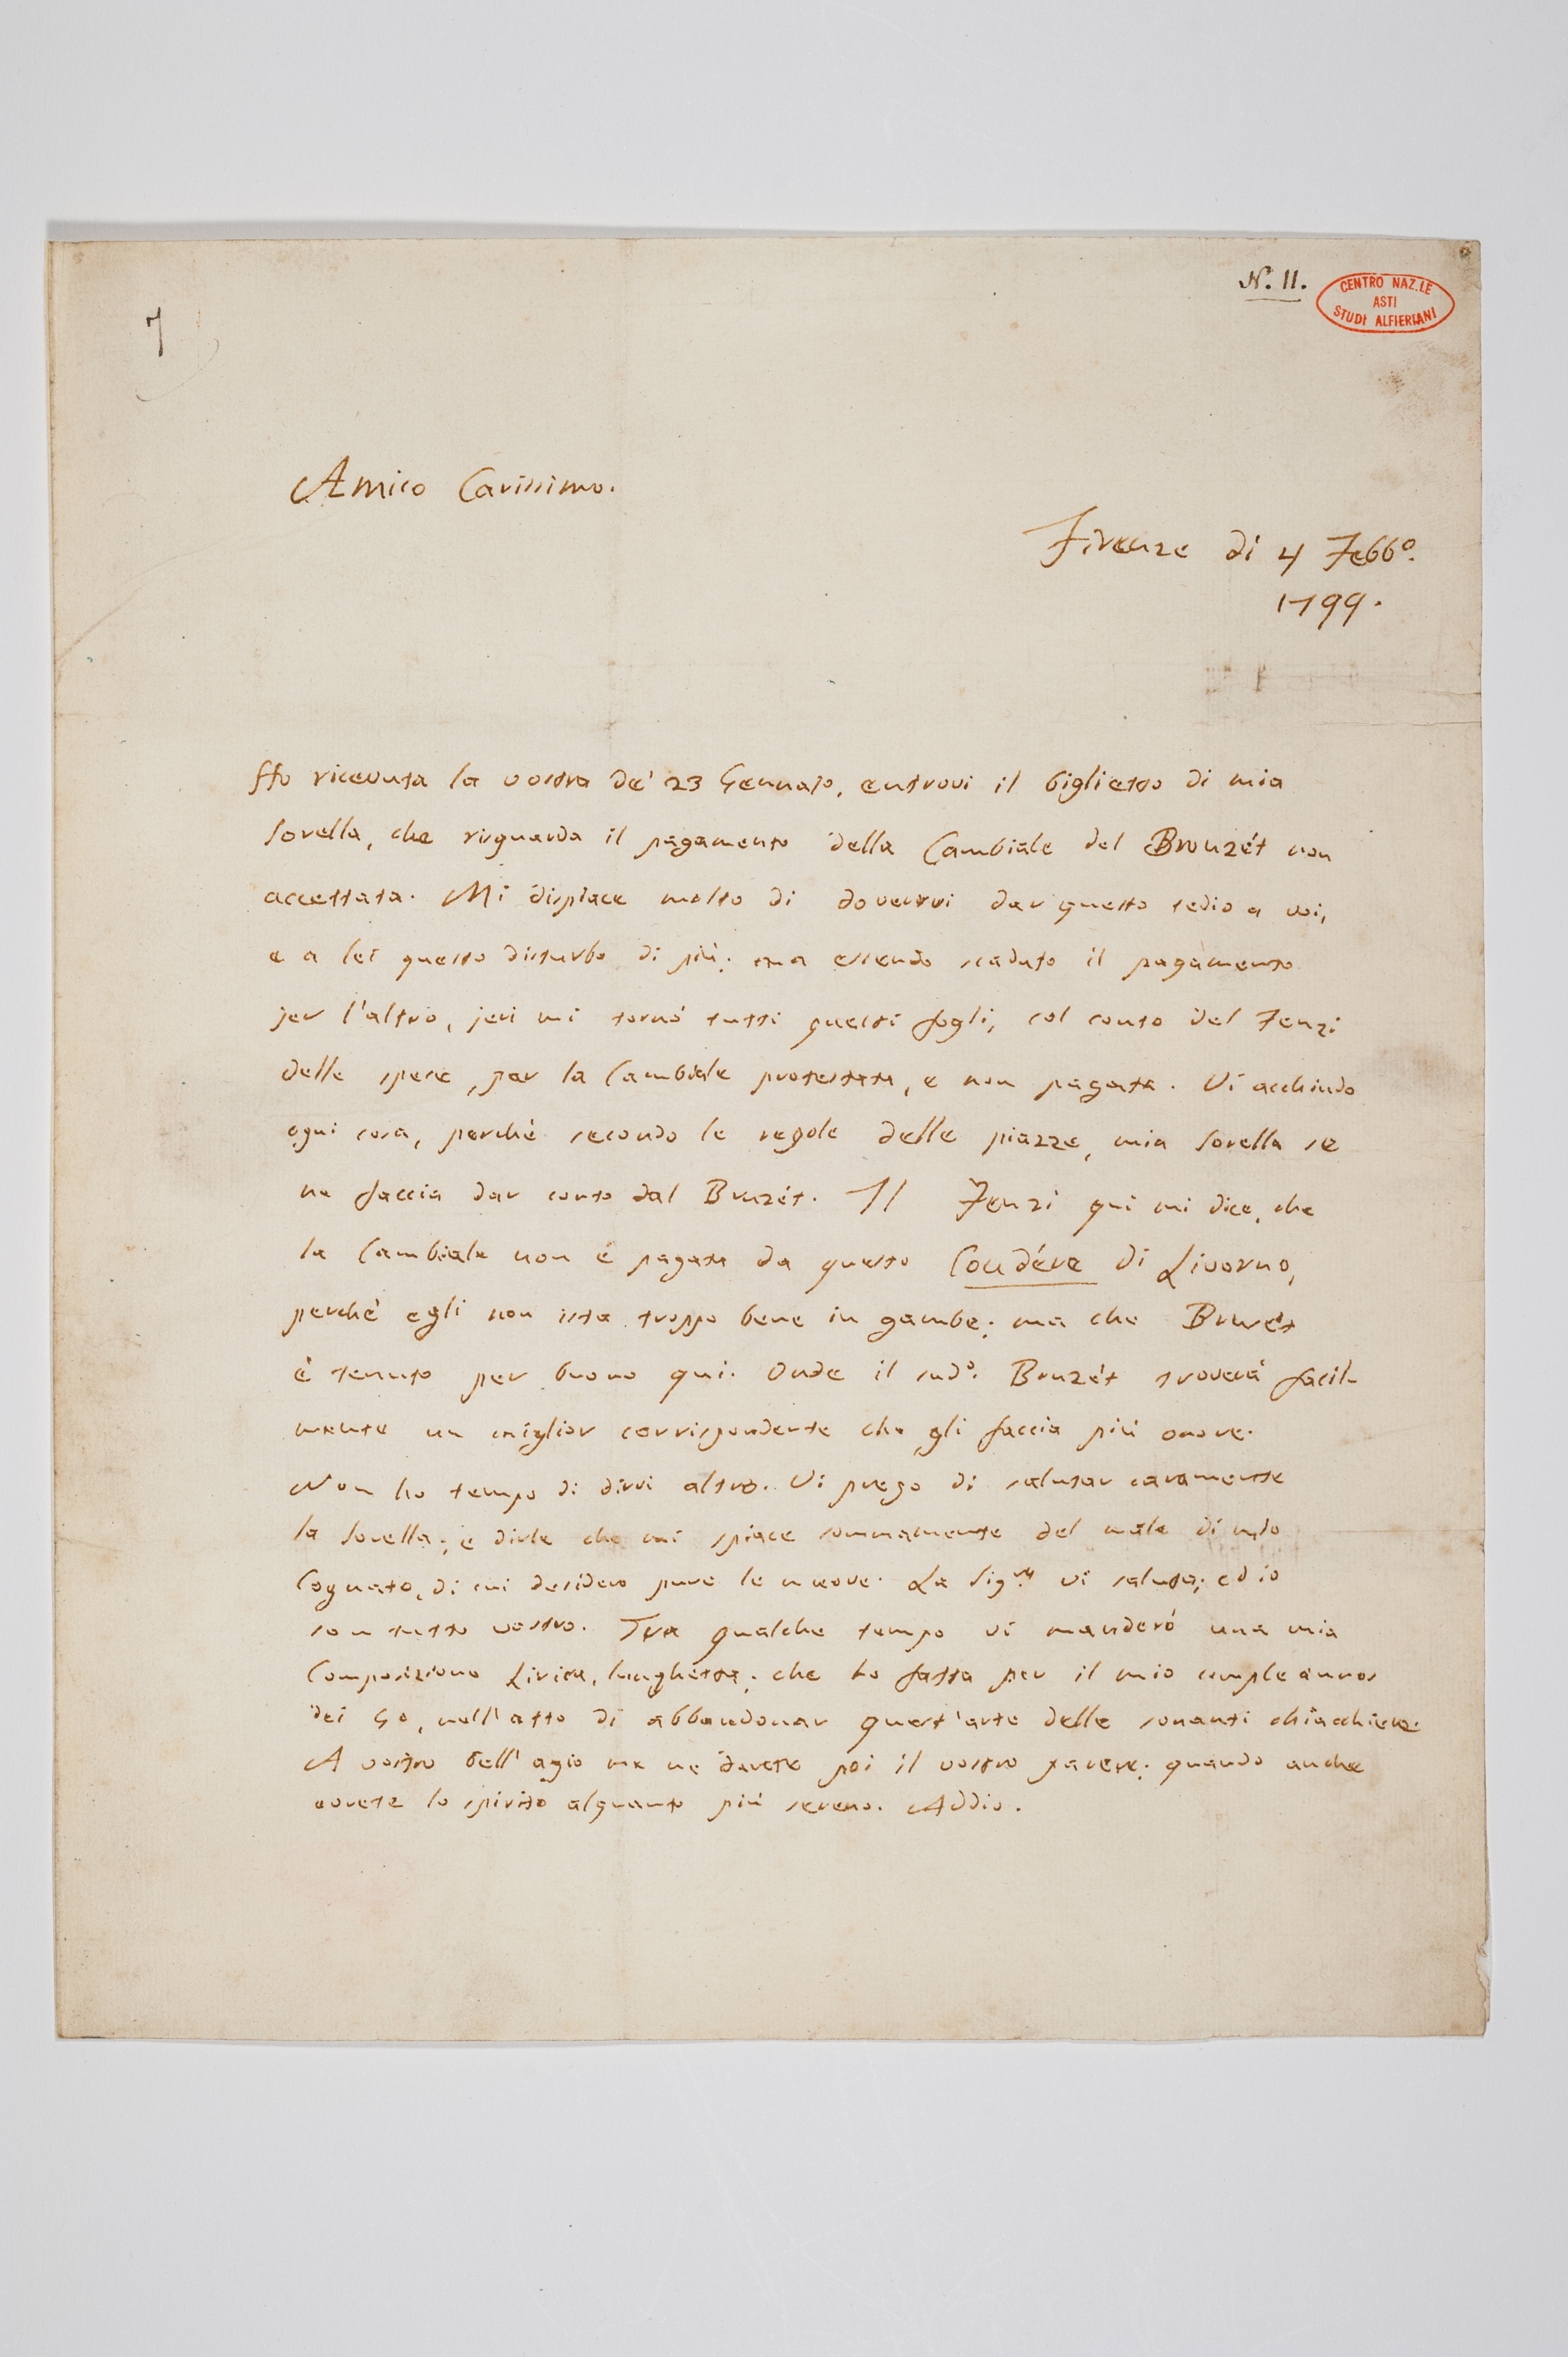 N.° II.
CENTRO NAZ.LE
ASTI
STUDI ALFIERIANI
7
Amico Carissimo.
Firenze dì 4 Febb.°
1799.
Ho ricevuta la vostra de' 23 Gennajo, entrovi il biglietto di mia
Sorella, che risguarda il pagamento della Cambiale del Bruzét non
accettata. Mi dispiace molto di dovervi dar questo tedio a voi,
e a lei questo disturbo di più; ma essendo scaduto il pagamento
jer l'altro, jeri mi tornò tutti questi fogli, col conto del Fenzi
delle spese, per la Cambiale protestata, e non pagata. Vi acchiudo
ogni cosa, perchè secondo le regole delle piazze, mia Sorella se
ne faccia dar conto dal Bruzét. Il Fenzi qui mi dice, che
la Cambiale non è pagata da questo Coudére di Livorno,
perchè egli non ista troppo bene in gambe; ma che Bruzét
è tenuto per buono qui. Onde il sud.° Bruzét troverà facil-
mente un miglior corrispondente che gli faccia più onore.
Non ho tempo di dirvi altro. Vi prego di salutar caramente
la Sorella; e dirle che mi spiace sommamente del male di mio
Cognato, di cui desidero pure le nuove. La Sig.ra vi saluta; ed io
son tutto vostro. Tra qualche tempo vi manderò una mia
Composizione Lirica, lunghetta; che ho fatta per il mio compleannos
dei 50, nell'atto di abbandonar quest'arte delle sonanti chiacchiere.
A vostro bell'agio me ne darete poi il vostro parere; quando anche
avrete lo spirito alquanto più sereno. Addio.